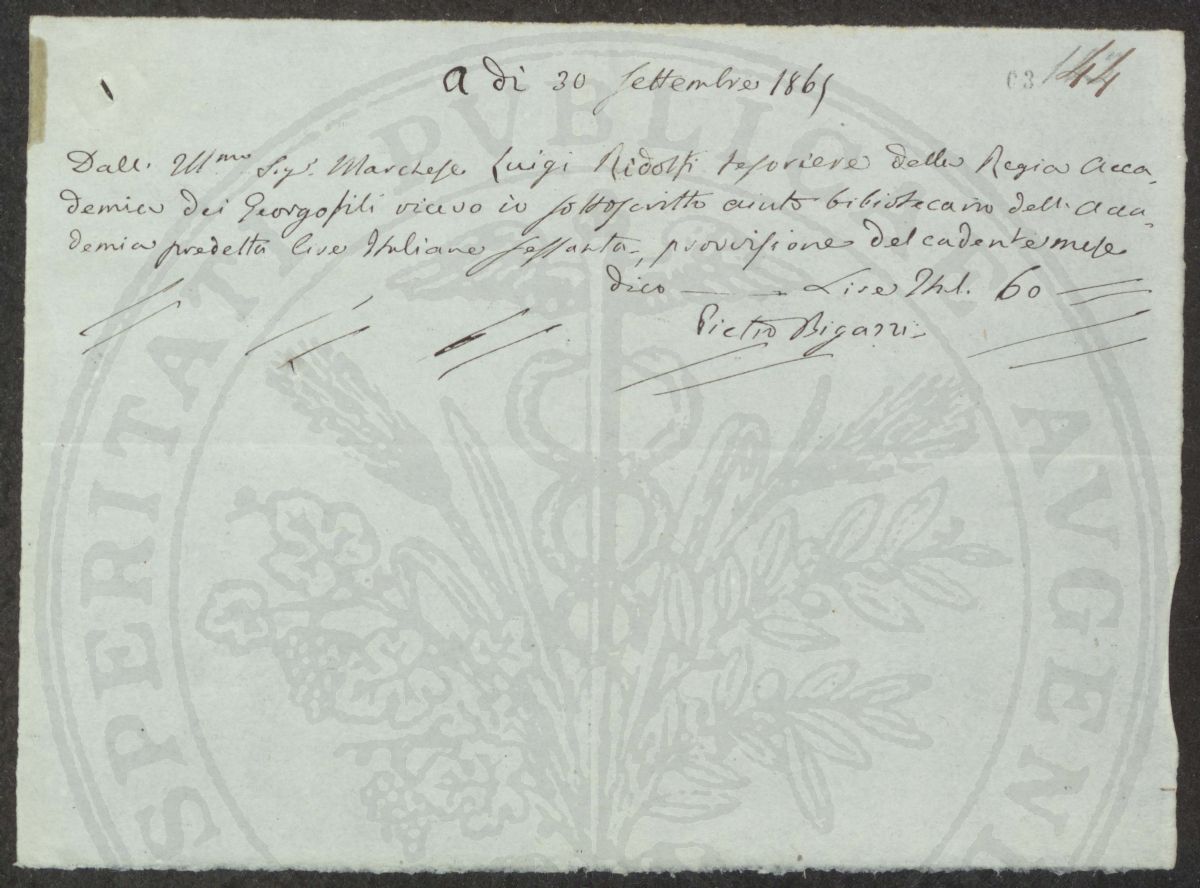 a dì 30 Settembre 1865
03 144
Dall. Ill.mo Sig.r Marchese Luigi Ridolfi tesoriere della Regia Acca
demia dei Georgofili ricevo io sottoscritto aiuto bibliotecario dell. Acca
demia predetta lire Italiane sessanta, provvisione del cadente mese
dico — Lire Ital. 60
Pietro Bigazzi
SPERITATI PUBLICAE AVGEN